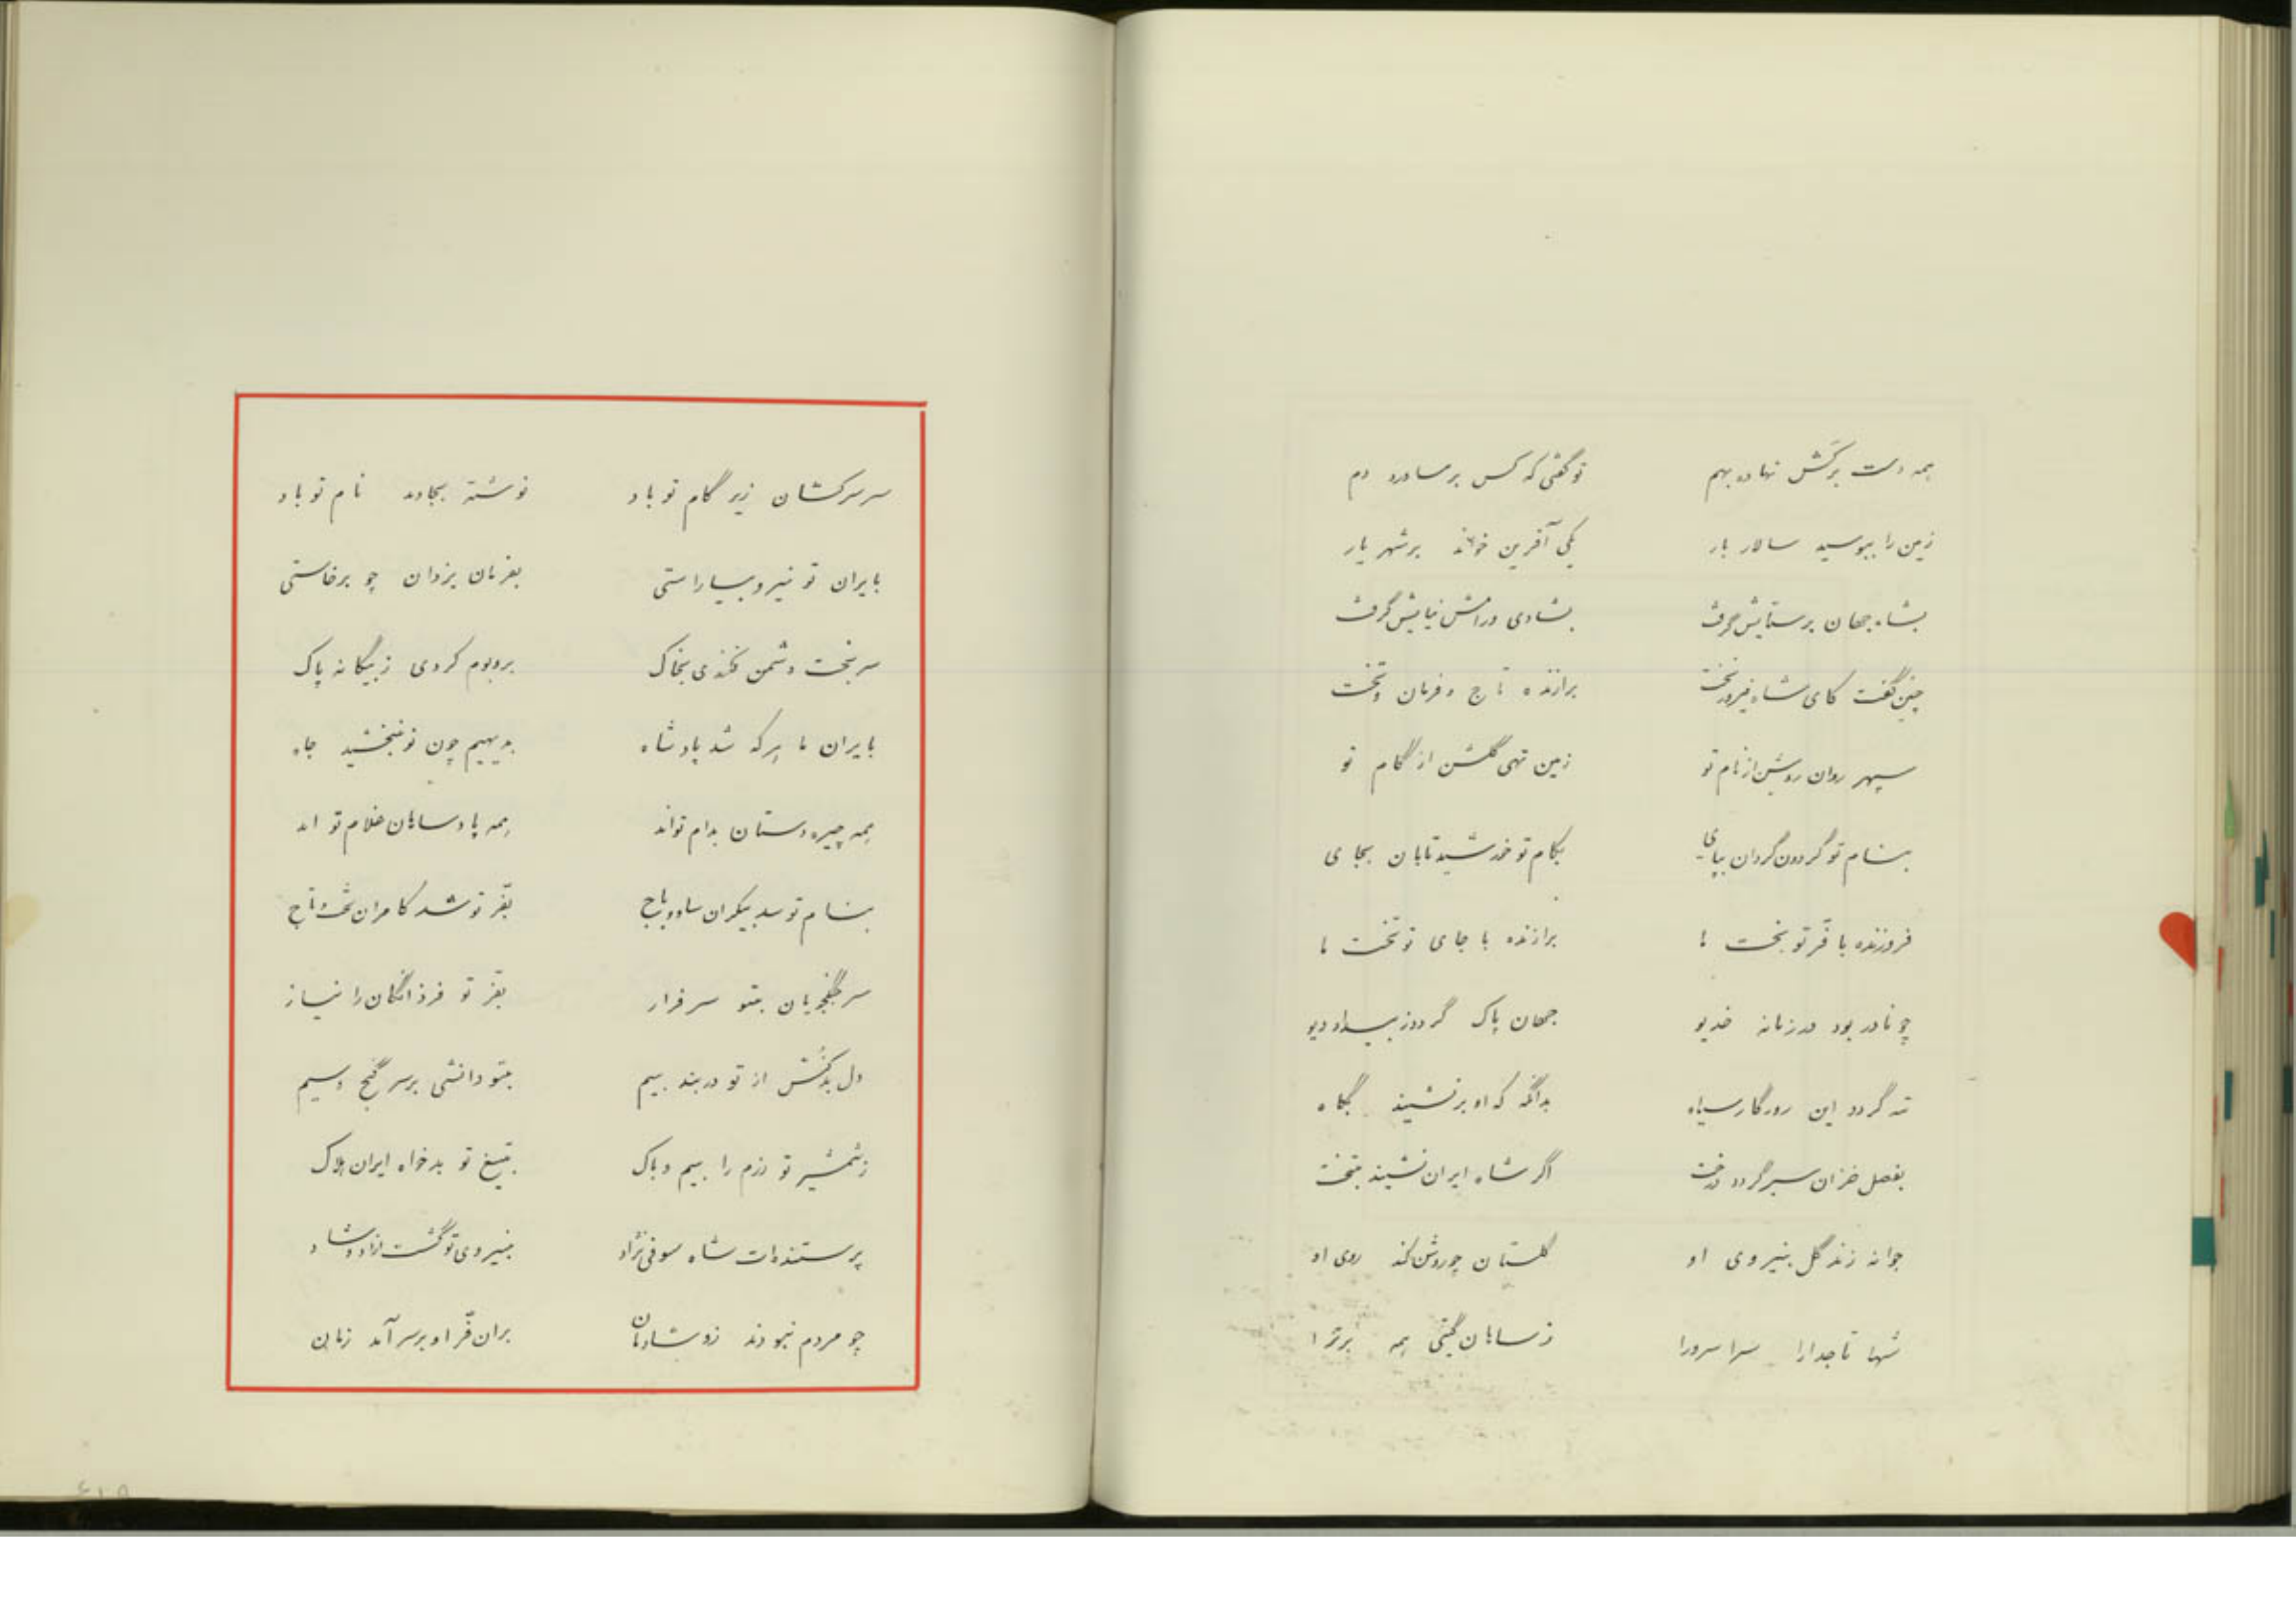 همه دست برکش نهاده بهم توگفتی که کس برنیاورد دم
زمین را ببوسید سالار بار یکی آفرین خواند برشهریار
بشاه جهان برستایش گرفت بشادی ورامش نیایش گرفت
چنین گفت کای شاه فیروزبخت برازنده تاج و فرمان وتخت
سپهر روان روشن از نام تو زمین تهی گلشن از گام تو
بنام تو گردون گردان بپای بکام تو خورشید تابان بجای
فروزنده با فّر تو بخت ما برازنده با جای تو تخت ما
چو نادر بود در زمانه خدیو جهان پاک گردد ز بیداد دیو
گردد این روزگار سیاه بدانگه که او برنشیند بگاه
بفصل خزان سبز گردد درخت اگر شاه ایران نشیند بتخت
جوانه زند گل بنیروی او گلستان چو روشن کند روی او
شها تاجدارا سراسرورا ز شاهان گیتی همه برترا
سر سرکشان زیر گام تو باد نوشته بجاوید نام تو باد
بایران تو نیرو بیاراستی بفرمان یزدان چو برخاستی
سربخت دشمن فکندی بخاک بروبوم کردی ز بیگانه پاک
بایران ما هرکه شد پادشاه بدیهیم چون تو نبخشید جاه
همه چیره دستان بدام تواند همه پادشاهان غلام تو اند
بنام تو شد بیکران ساو و باج بفّر تو شد کامران تخت و تاج
سر جنگجویان بتو سرفراز بفّر تو فرزانگان را نیاز
دل بدکُنش از تو در بند بیم بتو دانشی برسر گنج وسیم
ز شمشیر تو رزم را بیم و باک بتیغ تو بدخواه ایران هلاک
پرستنده‌ات شاه سوفی نژاد بنیروی تو گشت آزاد و شاد
چو مردم نبودند زو شادمان بران فّر او برسر آمد زمان